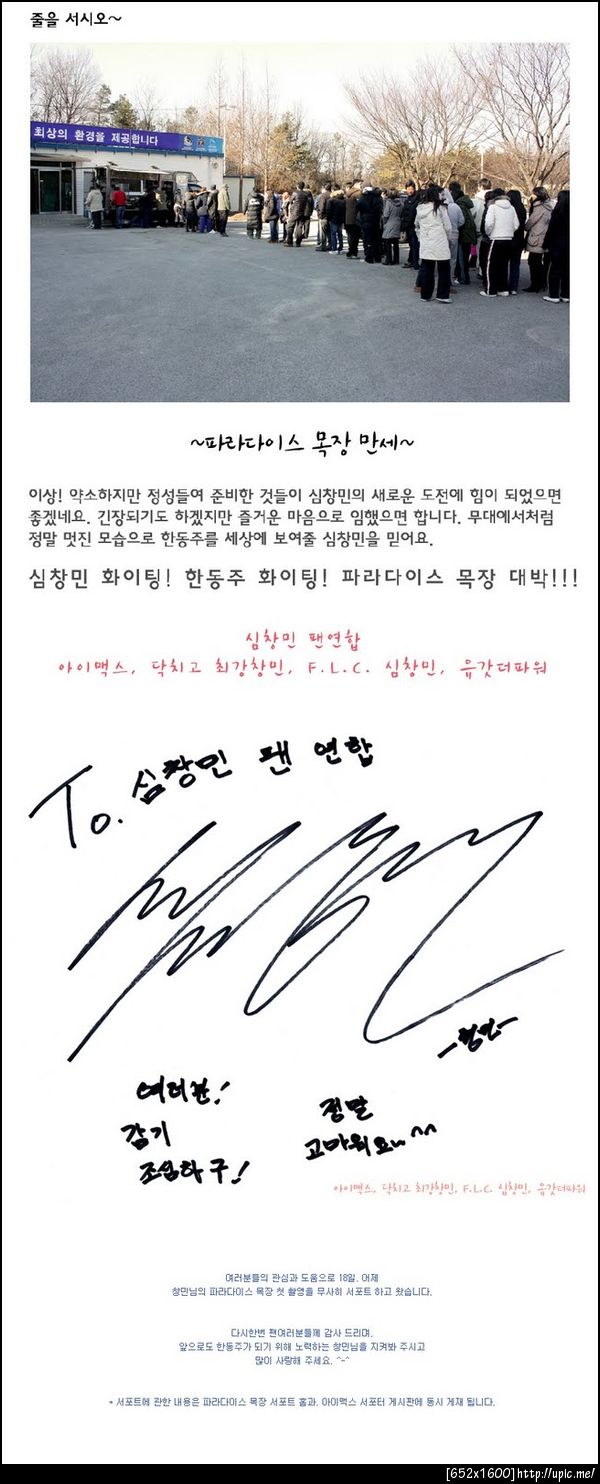 줄을 서시오~
최상의 환경을 제공합니다
~파라다이스 목장 만세~
이상! 약소하지만 정성들여 준비한 것들이 심창민의 새로운 도전에 힘이 되었으면
좋겠네요. 긴장되기도 하겠지만 즐거운 마음으로 임했으면 합니다. 무대에서처럼
정말 멋진 모습으로 한동주를 세상에 보여줄 심창민을 믿어요.
심창민 화이팅! 한동주 화이팅! 파라다이스 목장 대박!!!
심창민 팬연합
아이맥스, 닥치고 최강창민, F.L.C. 심창민, 유갓더파워
To. 심창민 팬 연합
-창민-
여러분!
감기
조심하구!
정말
고마워요~ ^^
아이맥스, 닥치고 최강창민, F.L.C. 심창민, 유갓더파워
여러분들의 관심과 도움으로 18일, 어제
창민님의 파라다이스 목장 첫 촬영을 무사히 서포트 하고 왔습니다.
다시한번 팬여러분들께 감사 드리며,
앞으로도 한동주가 되기 위해 노력하는 창민님을 지켜봐 주시고
많이 사랑해 주세요. ^-^
* 서포트에 관한 내용은 파라다이스 목장 서포트 홈과, 아이맥스 서포터 게시판에 동시 게재 됩니다.
[652x1600]http://upic.me/